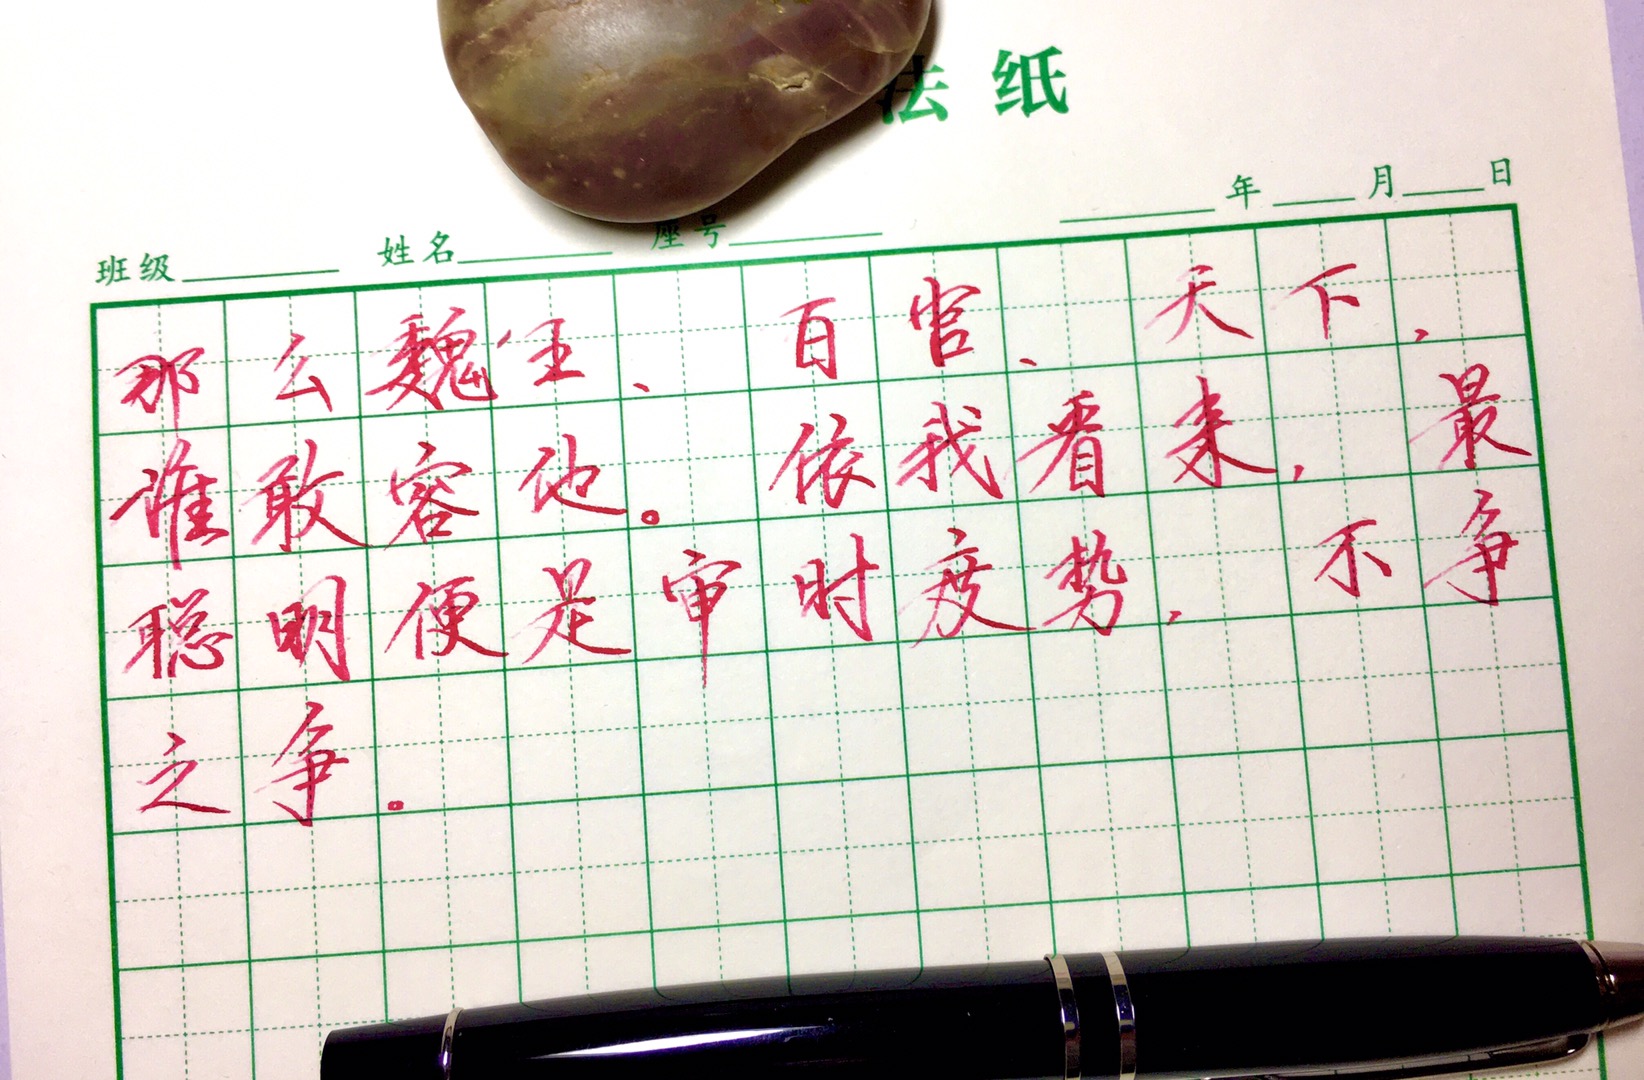 法纸
年 月 日
班级 姓名 座号
那么魏王、百官、天下，
谁敢容他。依我看来，最
聪明便是审时度势，不争
之争。